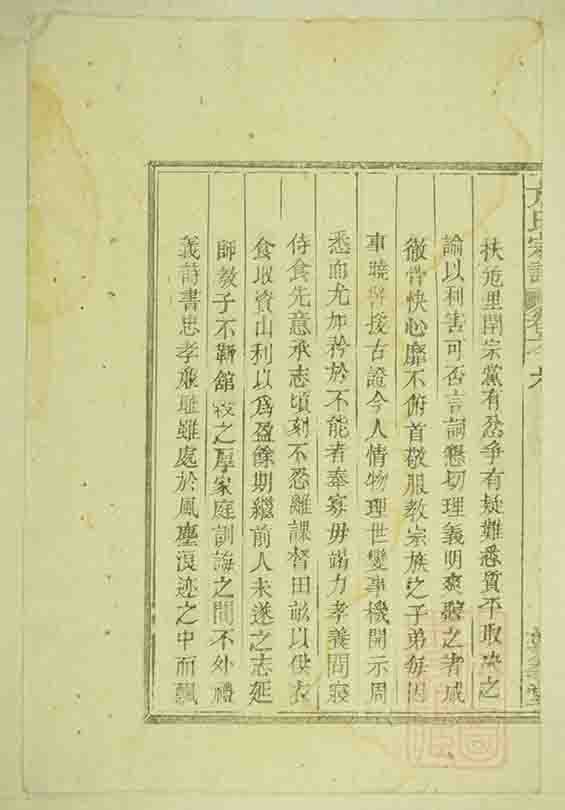 扶危里閈宗黨有忿争有疑難悉質平取决之
諭以利害可否言詞懇切理義明爽聽之者咸
徹骨快心靡不俯首敬服教宗族之子弟每因
事曉譬援古證今人情物理世變事機開示周
悉而尤加矜於不能者奉寡母竭力孝養問寢
侍食先意承志頃刻不忍離課督田畝以供衣
食取資山利以為盈餘期繼前人未遂之志延
師教子不靳館穀之厚家庭訓誨之間不外禮
義詩書忠孝雖處於風塵浪迹之中而飄